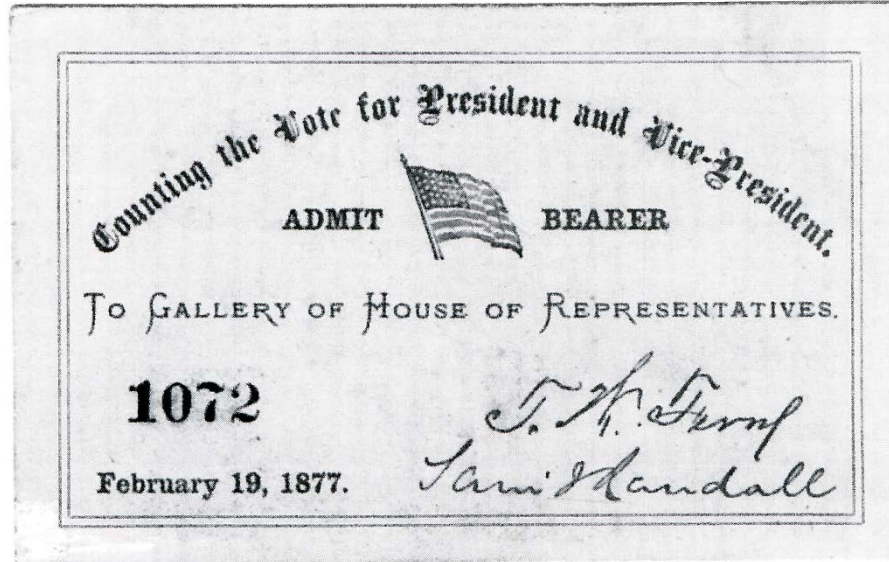 Counting the Vote for President and Vice-President.
ADMIT BEARER
TO GALLERY OF HOUSE OF REPRESENTATIVES.
1072
T. W. Ferry
February 19, 1877.
Sam J Randall